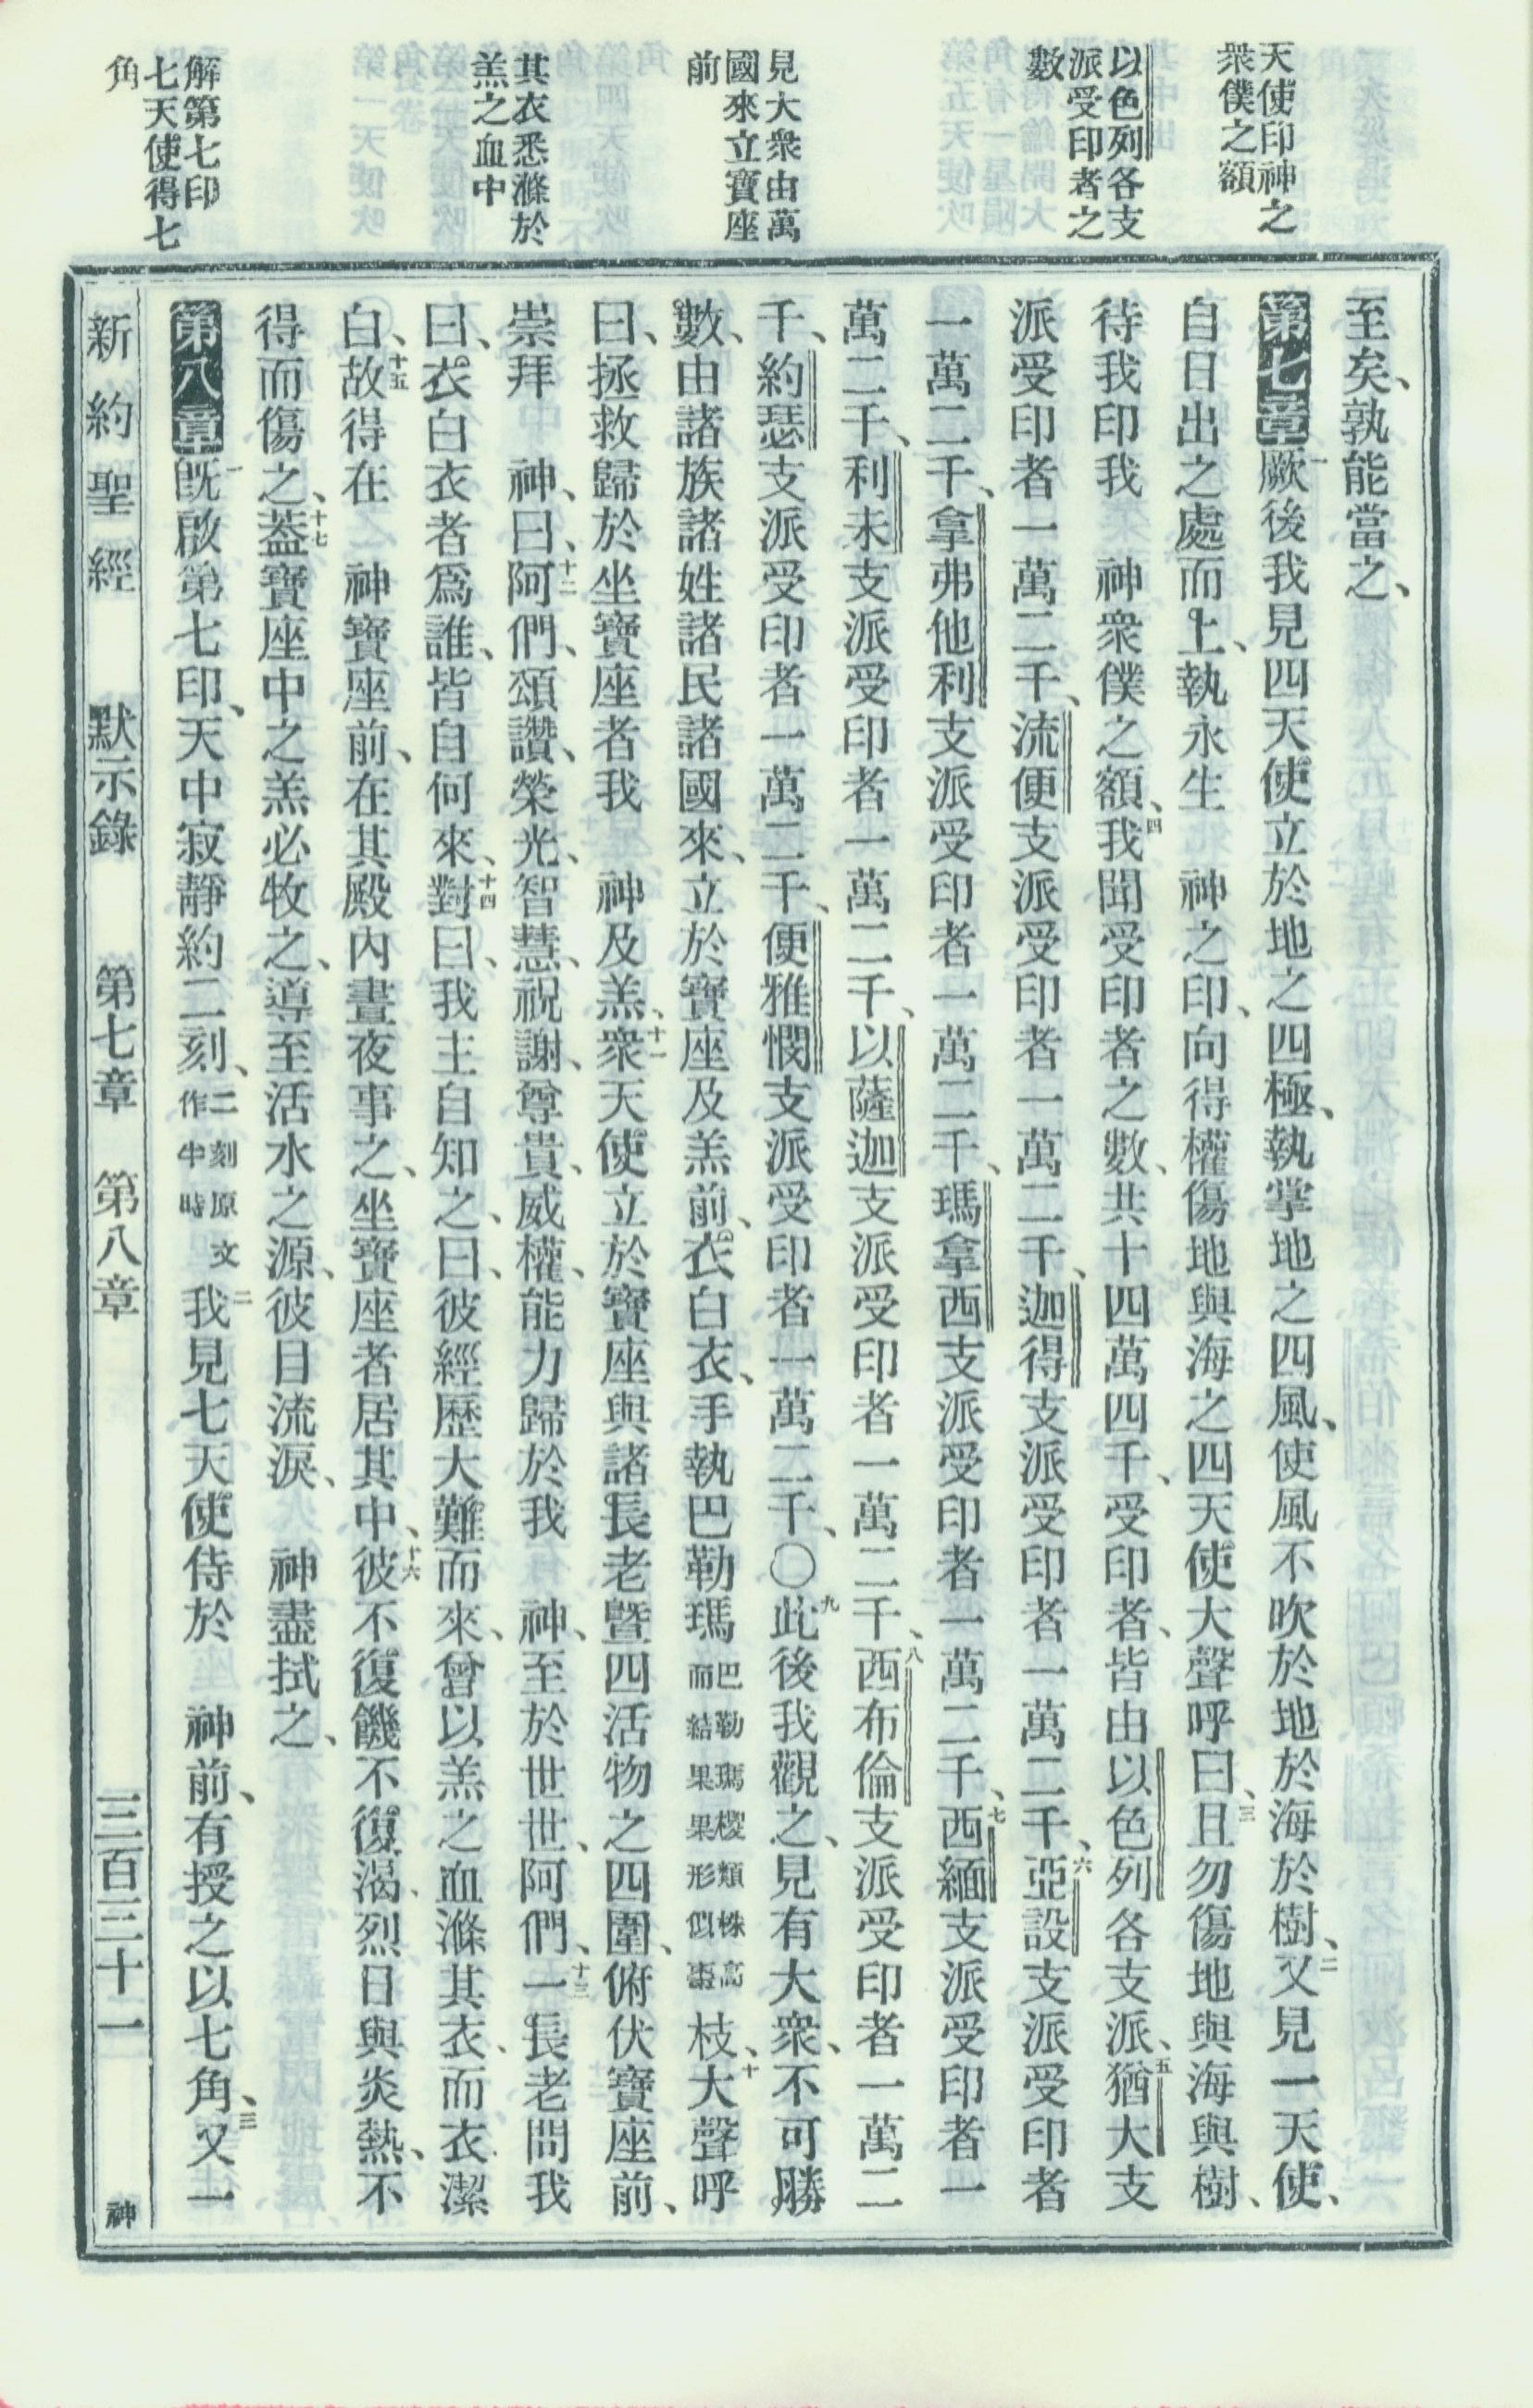 天使印神之
衆僕之額
以色列各支
派受印者之
數
見大衆由萬
國來立寶座
前
其衣悉滌於
羔之血中
解第七印
七天使得七
角
至矣、孰能當之、
第七章一厥後我見四天使立於地之四極、執掌地之四風、使風不吹於地於海於樹、二又見一天使、
自日出之處而上、執永生　神之印、向得權傷地與海之四天使大聲呼曰、三且勿傷地與海與樹、
待我印我　神衆僕之額、四我聞受印者之數、共十四萬四千、受印者、皆由以色列各支派、五猶大支
派受印者一萬二千、流便支派受印者一萬二千、迦得支派受印者一萬二千、六亞設支派受印者
一萬二千、拿弗他利支派受印者一萬二千、瑪拿西支派受印者一萬二千、七西緬支派受印者一
萬二千、利未支派受印者一萬二千、以薩迦支派受印者一萬二千、八西布倫支派受印者一萬二
千、約瑟支派受印者一萬二千、便雅憫支派受印者一萬二千、〇九此後我觀之、見有大衆、不可勝
數、由諸族諸姓諸民諸國來、立於寶座及羔前、衣白衣、手執巴勒瑪巴勒瑪椶類株高而結果果形似棗枝、十大聲呼
曰、拯救歸於坐寶座者我　神及羔、十一衆天使立於寶座與諸長老暨四活物之四圍、俯伏寶座前、
崇拜　神、曰、十二阿們、頌讚、榮光、智慧、祝謝、尊貴、威權、能力歸於我　神、至於世世、阿們、十三一長老問我
曰、衣白衣者爲誰、皆自何來、十四對曰、我主自知之、曰、彼經歷大難而來、曾以羔之血滌其衣、而衣潔
白、十五故得在　神寶座前、在其殿內晝夜事之、坐寶座者居其中、十六彼不復饑不復渴、烈日與炎熱、不
得而傷之、十七葢寶座中之羔必牧之、導至活水之源、彼日流淚、　神盡拭之、
第八章一旣啟第七印、天中寂靜約二刻、二刻原文作半時二我見七天使侍於　神前、有授之以七角、三又一
新約聖經　默示錄　第七章　第八章　三百三十一　神